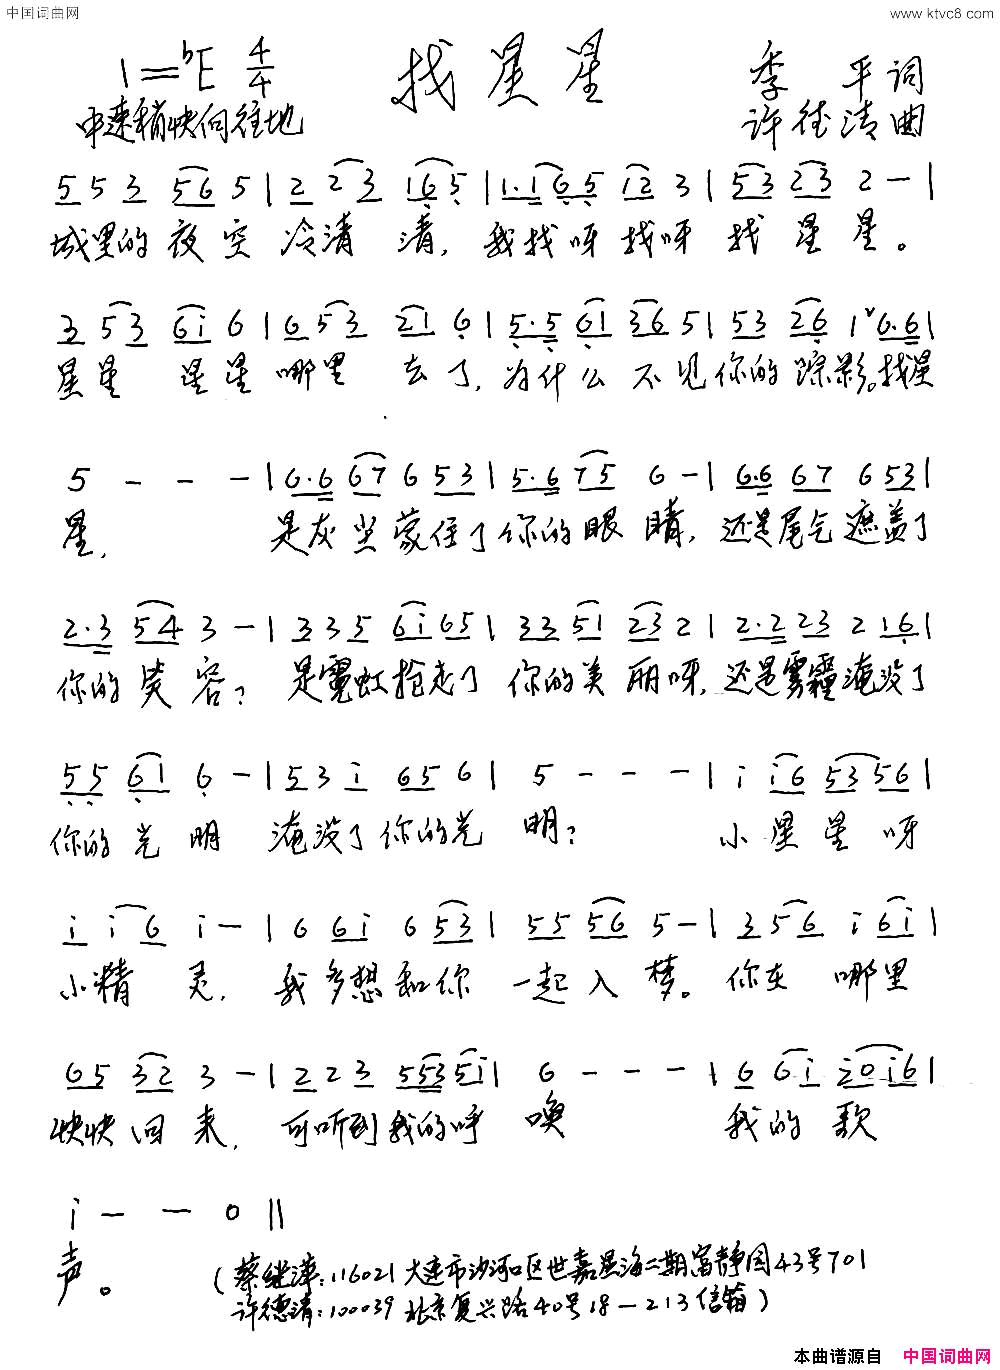 中国词曲网 www.ktvc8.com
1=♭E 4/4 找星星 季 平词
中速稍快向往地 许德清曲
5 5 3 5 6 5 | 2 2 3 1 6 5 | 1·1 6 5 1 2 3 | 5 3 2 3 2 — |
城里的夜空冷清 清, 我找呀找呀找 星 星。
3 5 3 6 i 6 | 6 5 3 2 1 6 | 5·5 6 1 3 6 5 | 5 3 2 6 1 ˅ 6·6 |
星星 星星哪里 去了, 为什么 不见你的踪影。找星
5 — — — | 6·6 6 7 6 5 3 | 5·6 7 5 6 — | 6·6 6 7 6 5 3 |
星, 是灰尘蒙住了你的眼睛, 还是尾气遮盖了
2·3 5 4 3 — | 3 3 5 6 i 6 5 | 3 3 5 1 2 3 2 | 2·2 2 3 2 1 6 |
你的笑容? 是霓虹抢走了 你的美丽呀, 还是雾霾淹没了
5 5 6 1 6 — | 5 3 i 6 5 6 | 5 — — — | i i 6 5 3 5 6 |
你的光明 淹没了你的光 明? 小星星呀
i i 6 i — | 6 6 i 6 5 3 | 5 5 5 6 5 — | 3 5 6 i 6 i |
小精 灵, 我多想和你 一起入梦。你在 哪里
6 5 3 2 3 — | 2 2 3 5 5 3 5 i | 6 — — — | 6 6 i 2 0 i 6 |
快快回来, 可听到我的呼 唤 我的 歌
i — — 0 ‖
声。 (蔡继萍:116021 大连市沙河口区世嘉星海二期富静园43号701
许德清:100039 北京复兴路40号18—213信箱)
本曲谱源自 中国词曲网